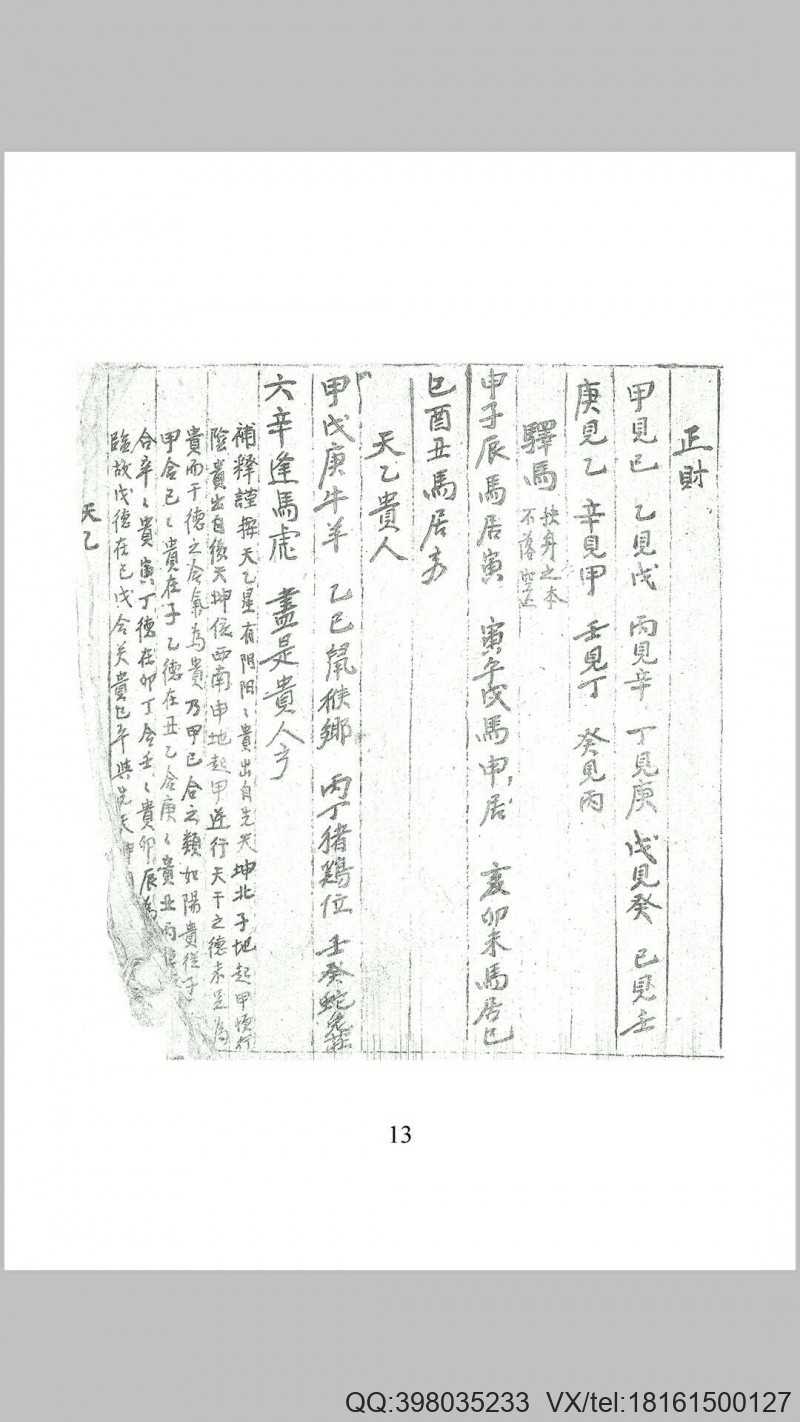 正財
甲見己 乙見戊 丙見辛 丁見庚 戊見癸 己見壬
庚見乙 辛見甲 壬見丁 癸見丙
驛馬
不落空亡
申子辰馬居寅 寅午戌馬申居 亥卯未馬居巳
巳酉丑馬居亥
天乙貴人
甲戊庚牛羊 乙己鼠猴鄉 丙丁猪鷄位 壬癸蛇兔
六辛逢馬虎 盡是貴人
補釋謹按天乙星有阴阳〻貴出自先天坤北子地起甲順行
陰貴出自後天坤位西南申地起甲逆行天干之德未足為
貴而干德之合氣為貴乃甲己合之類如陽貴從子
甲合己〻貴在子乙德在丑乙合庚〻貴丑丙
合辛〻貴寅丁德在卯丁合壬〻貴卯辰為
臨故戊德在巳戊合癸貴巳午與先天
天乙
13
QQ:398035233 VX/tel:18161500127